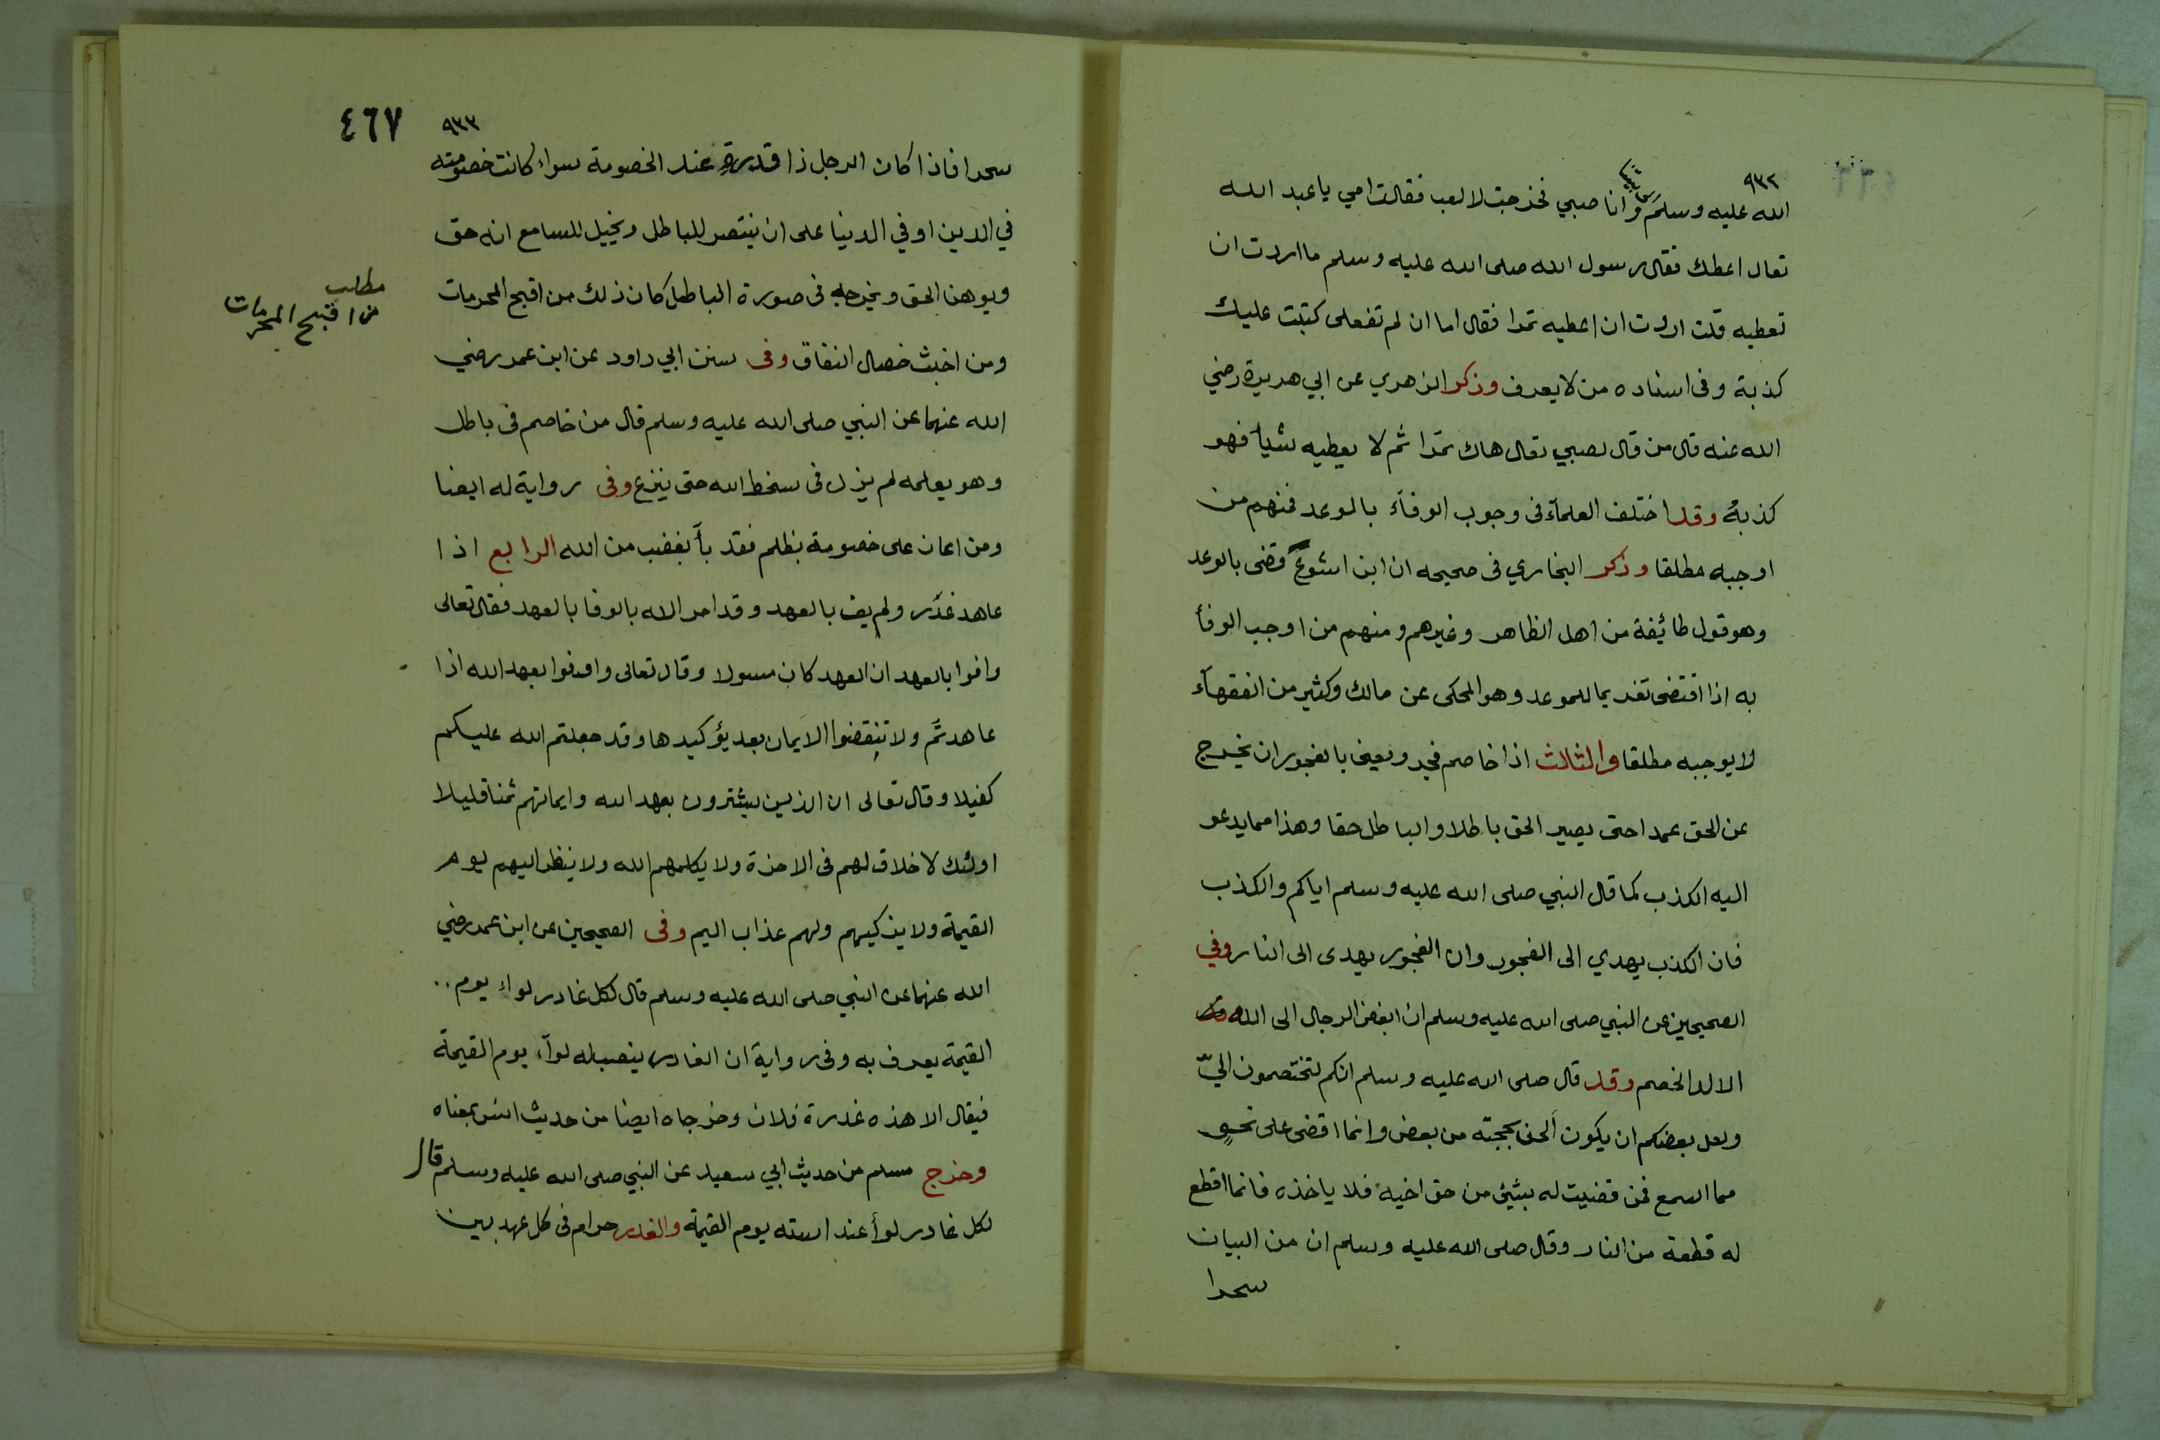 ٩٣٢
الله عليه وسلم وانا صبي فخرجت لالعب فقالت امي يا عبد الله
تعال اعطك فقال رسول الله صلى الله عليه وسلم ما اردت ان
تعطيه قلت اردت ان اعطيه تمرا فقال اما ان لم تفعلى كتبت عليك
كذبة وفى اسناده من لا يعرف وذكر الزهري عن ابي هريرة رضي
الله عنه قال من قال لصبي تعال هاك تمرا ثم لا يعطيه شيأ فهو
كذبة وقد اختلف العلمآء فى وجوب الوفآء بالموعد فمنهم من
اوجبه مطلقا وذكر البخاري فى صحيحه ان ابن اشوع قضى بالوعد
وهو قول طائيفة من اهل الظاهر وغيرهم ومنهم من اوجب الوفأ
به اذا اقتضى تغريما للموعد وهو المحكى عن مالك وكثير من الفقهآء
لا يوجبه مطلقا والثالث اذا خاصم فجر ويعنى بالفجور ان يخرج
عن الحق عمدا حتى يصير الحق باطلا والباطل حقا وهذا مما يدعو
اليه الكذب كما قال النبي صلى الله عليه وسلم اياكم والكذب
فان الكذب يهدي الى الفجور وان الفجور يهدى الى النار وفي
الصحيحين عن النبي صلى الله عليه وسلم ان ابغض الرجال الى الله
الالد الخصم وقد قال صلى الله عليه وسلم انكم لتختصمون اليّ
ولعل بعضكم ان يكون ألحن بحجته من بعض وانما اقضى على نحوٍ
مما اسمع فمن قضيت له بشئ من حق اخيه فلا ياخذه فانما اقطع
له قطعة من النار وقال صلى الله عليه وسلم ان من البيان
سحرا
٤٦٧
٩٣٣
سحرا فاذا كان الرجل ذا قدرةٍ عند الخصومة سواء كانت خصومته
في الدين او في الدنيا على ان ينتصر للباطل ويخيل للسامع انه حق
ويوهن الحق ويخرجه فى صورة الباطل كان ذلك من اقبح المحرمات
مطلب
من اقبح المحرمات
ومن اخبث خصال النفاق وفى سنن ابي داود عن ابن عمر رضي
الله عنهما عن النبي صلى الله عليه وسلم قال من خاصم فى باطل
وهو يعلمه لم يزل فى سخط الله حتى ينزع وفى رواية له ايضا
ومن اعان على خصومة بظلم فقد بأ بغضب من الله الرابع اذا
عاهد غدر ولم يف بالعهد وقد امر الله بالوفا بالعهد فقال تعالى
وافوا بالعهد ان العهد كان مسولا وقال تعالى واوفوا بعهد الله اذا
عاهدتم ولا تنقضوا الايمان بعد يؤكيدها وقد جعلتم الله عليكم
كفيلا وقال تعالى ان الذين يشترون بعهد الله وايمانهم ثمنا قليلا
اولئك لا خلاق لهم فى الاخرة ولا يكلمهم الله ولا ينظر اليهم يوم
القيمة ولا يزكيهم ولهم عذاب اليم وفى الصحيحين عن ابن عمر رضي
الله عنهما عن النبي صلى الله عليه وسلم قال لكل غادر لواء يوم ..
القيمة يعرف به وفى رواية ان الغادر ينصب له لوآء يوم القيمة
فيقال الا هذه غدرة فلان وخرجاه ايضا من حديث انس بمعناه
وخرج مسلم من حديث ابي سعيد عن النبي صلى الله عليه وسلم قال
لكل غادر لوأ عند استه يوم القيمة والغدر حرام فى كل عهد بين